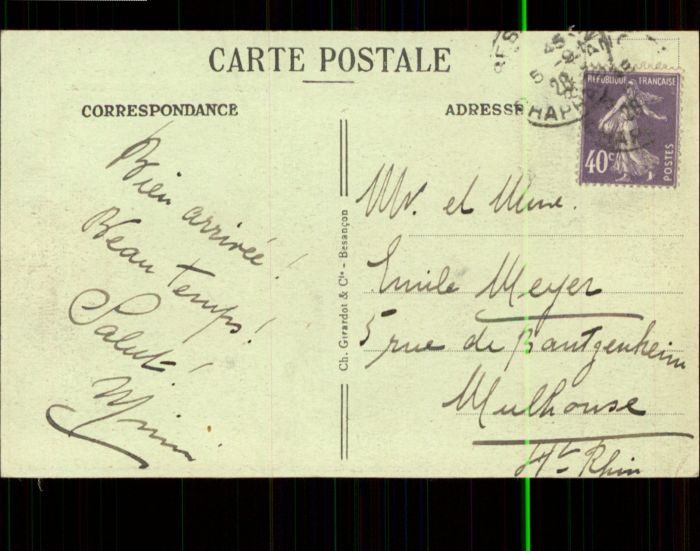 CARTE POSTALE
CORRESPONDANCE
Bien arrivée!
Beau temps!
Salut!
Mimi
Ch. Girardot & Cie - Besançon
ADRESSE
RÉPUBLIQUE FRANÇAISE
40c
POSTES
Mr. et Mme.
Emile Meyer
5 rue de Bantzenheim
Mulhouse
Ht Rhin